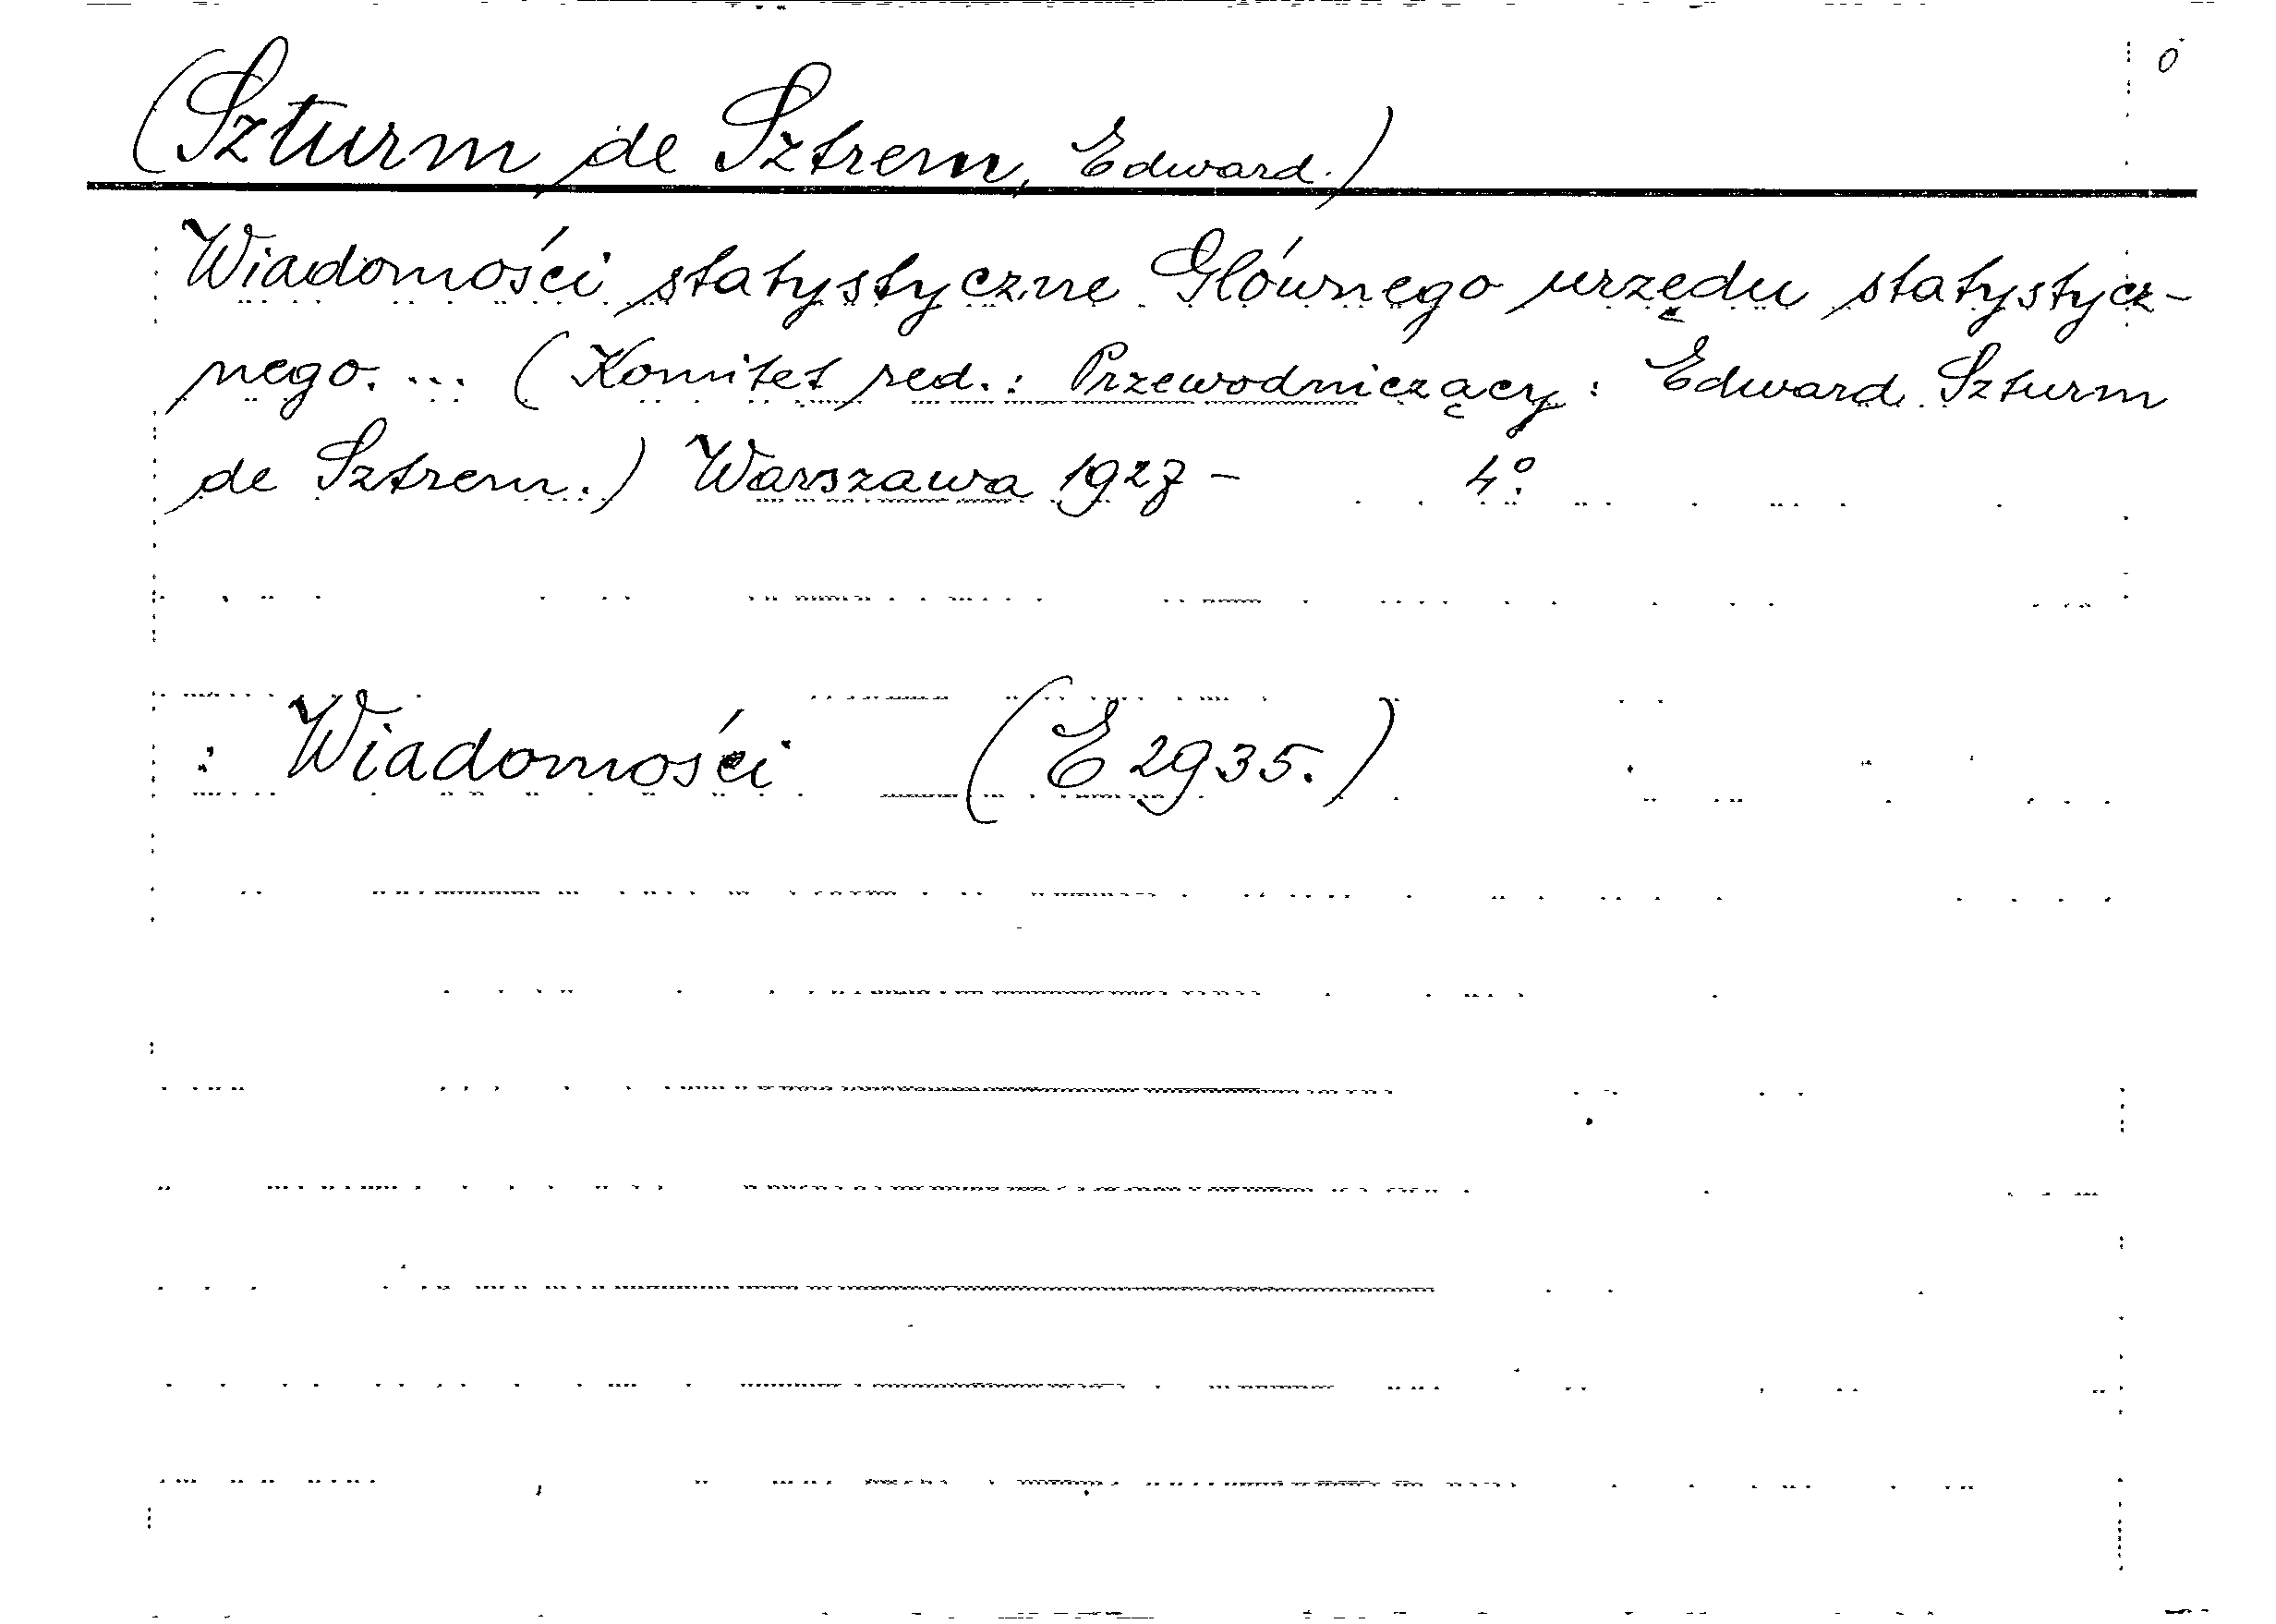 o
(Szturm de Sztrem, Edward.)
Wiadomości statystyczne Głównego urzędu statystycz-
nego. ... (Komitet red.: Przewodniczący: Edward Szturm
de Sztrem.) Warszawa 1927- 4:o
: Wiadomości (E 2935.)